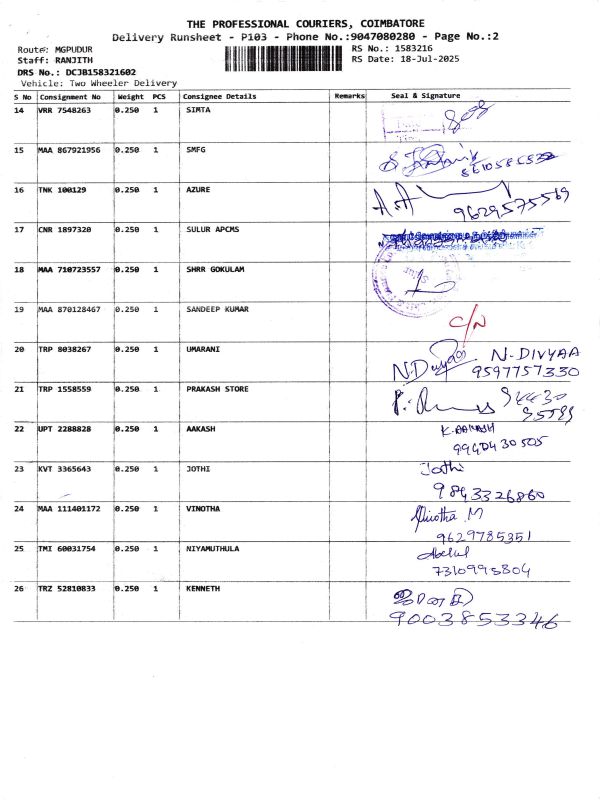 THE PROFESSIONAL COURIERS, COIMBATORE
Delivery Runsheet - P103 - Phone No.:9047080280 - Page No.:2
Route: MGPUDUR RS No.: 1583216
Staff: RANJITH RS Date: 18-Jul-2025
DRS No.: DCJB158321602
Vehicle: Two Wheeler Delivery
S No Consignment No Weight PCS Consignee Details Remarks Seal & Signature
14 VRR 7548263 0.250 1 SIMTA
15 MAA 867921956 0.250 1 SMFG
16 TNK 100129 0.250 1 AZURE
9629575569
17 CNR 1897320 0.250 1 SULUR APCMS
18 MAA 710723557 0.250 1 SHRR GOKULAM
19 MAA 870128467 0.250 1 SANDEEP KUMAR
C/N
20 TRP 8038267 0.250 1 UMARANI
N. Divyaa N-DIVYAA
9597757330
21 TRP 1558559 0.250 1 PRAKASH STORE
22 UPT 2288828 0.250 1 AAKASH K.AAKASH
23 KVT 3365643 0.250 1 JOTHI Jothi
9843326860
24 MAA 111401172 0.250 1 VINOTHA Vinotha M
9629785351
25 TMI 60031754 0.250 1 NIYAMUTHULA
7310995804
26 TRZ 52810833 0.250 1 KENNETH
9003853346